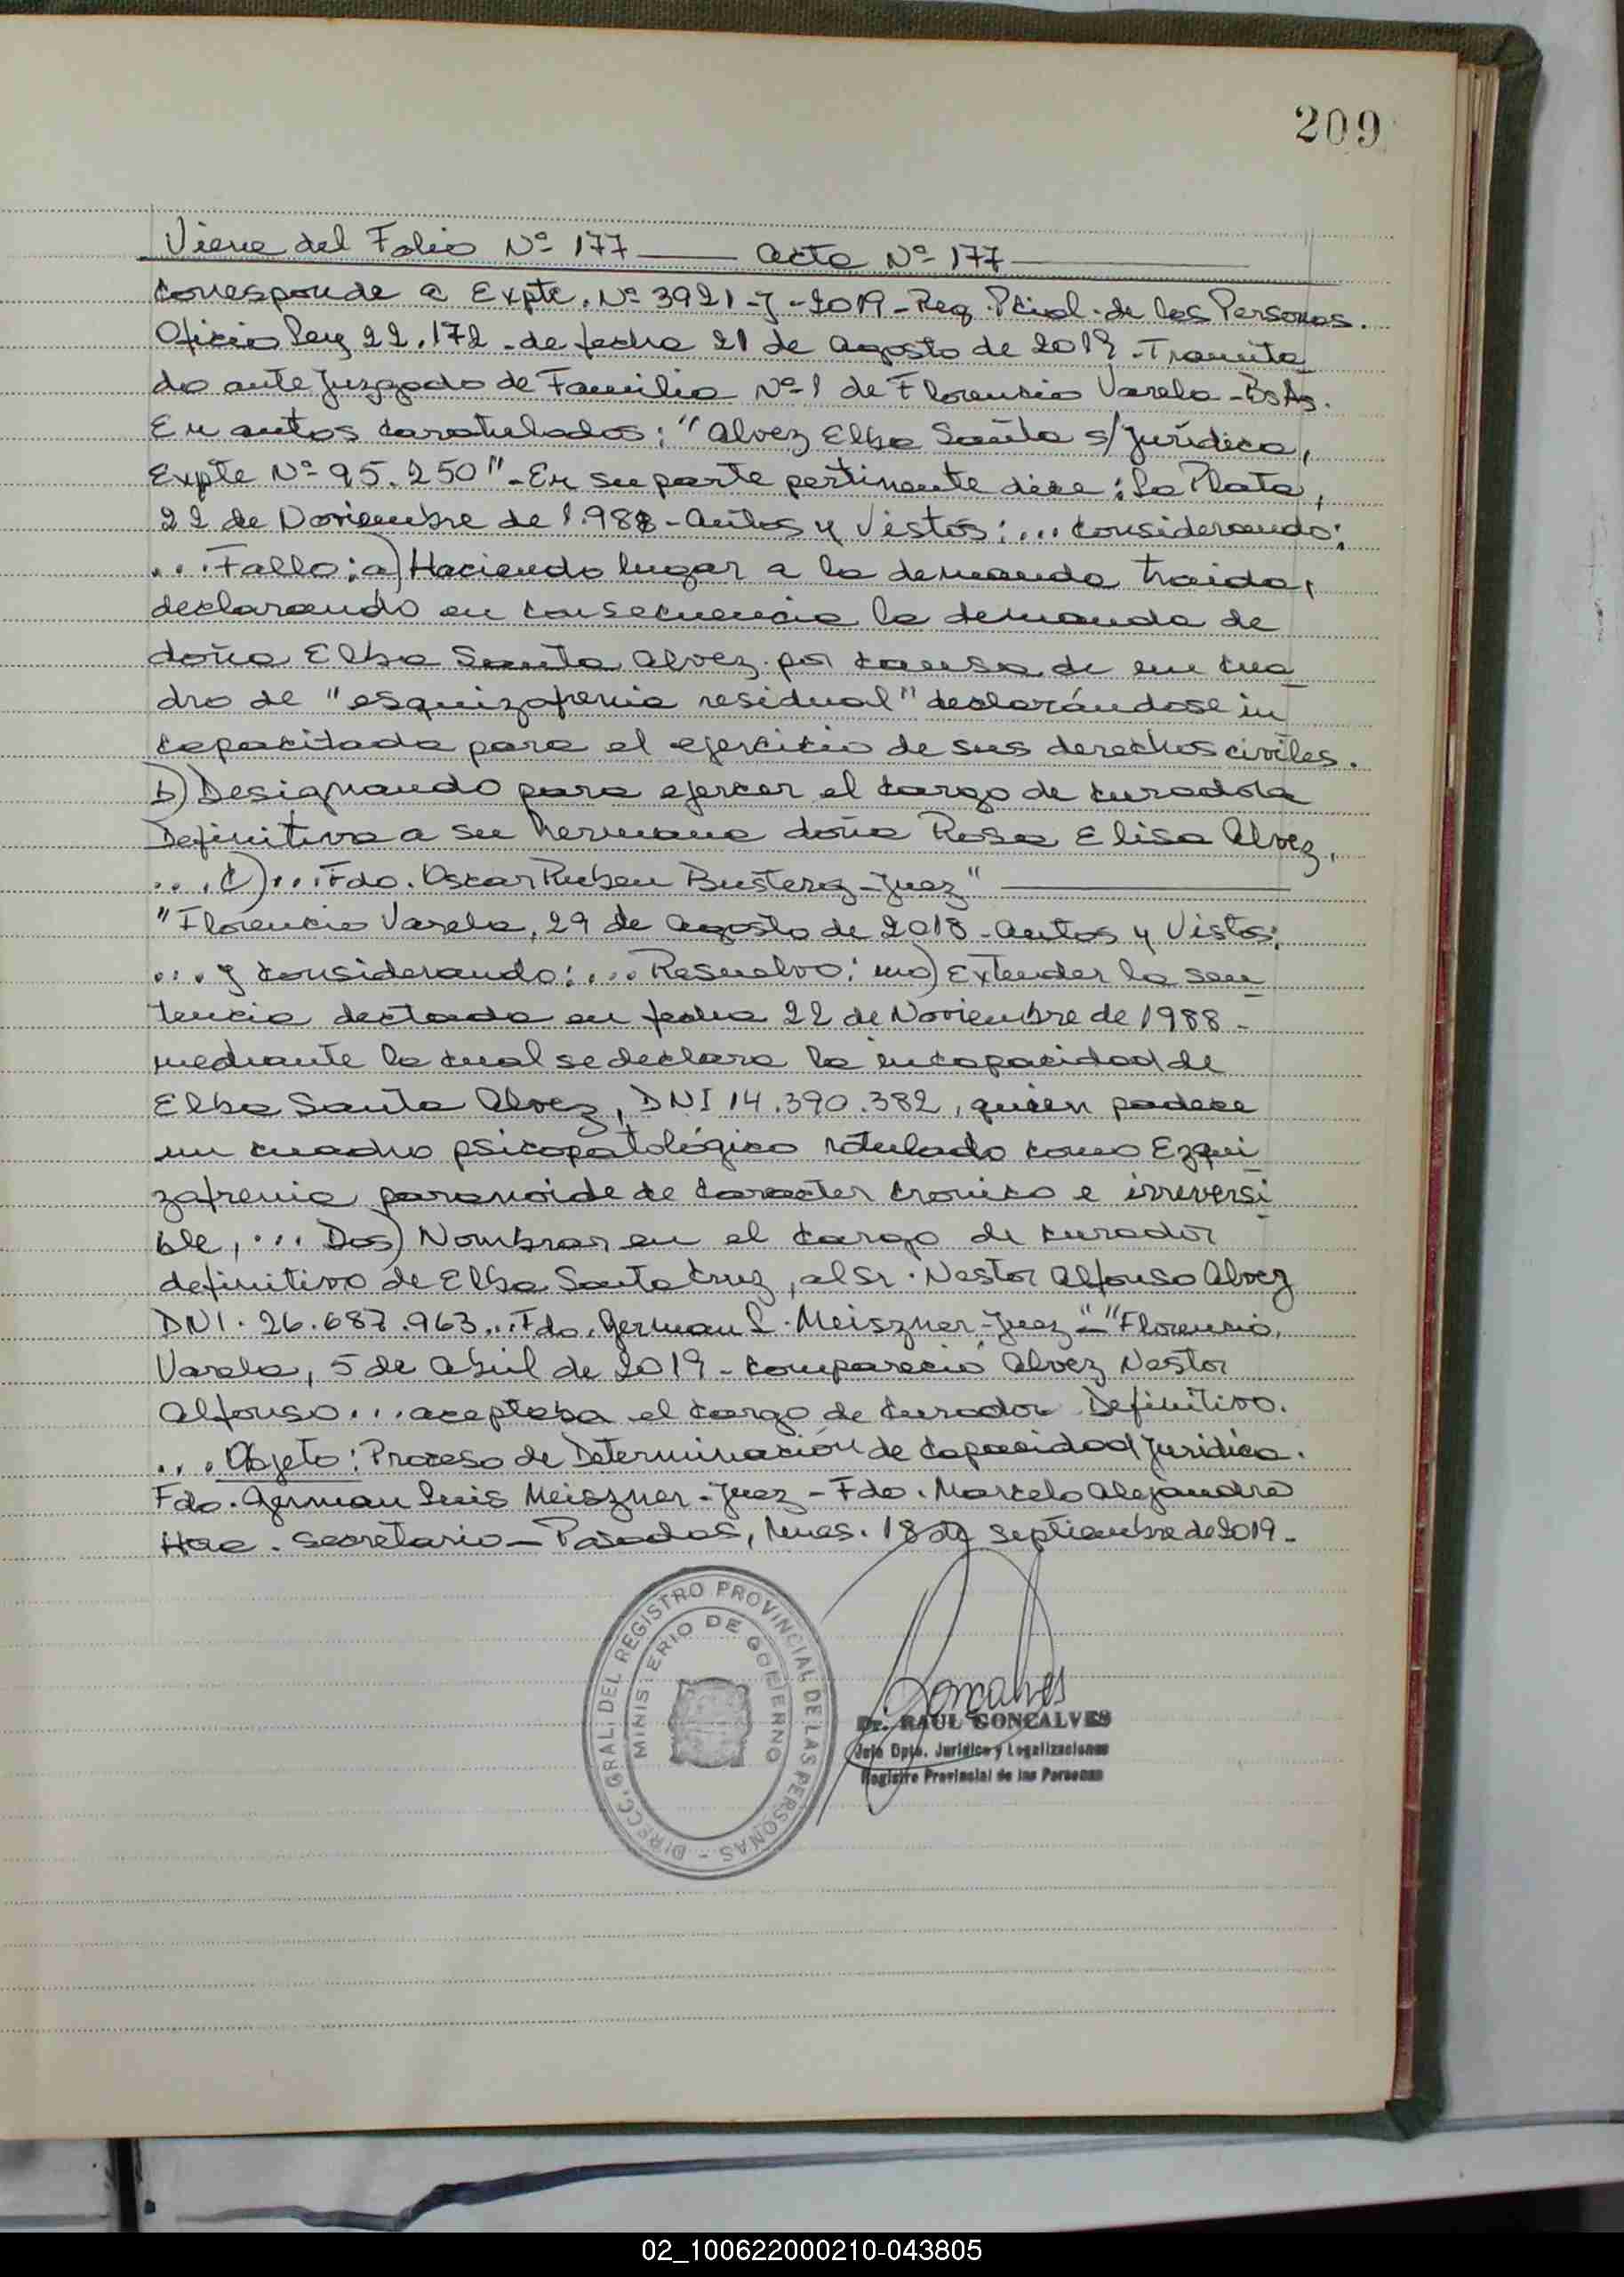 209
Viene del Folio Nº 177 —— Acta Nº 177 ——
corresponde a Expte. Nº 3921-J-2019-Reg. Pcial. de las Personas.
Oficio Ley 22.172 - de fecha 21 de Agosto de 2019 - Tramita_
do ante Juzgado de Familia Nº 1 de Florencio Varela - Bs As.
En autos caratulados: "Alvez Elba Santa s/ Jurídica,
Expte Nº 95.250" - En su parte pertinente dice: La Plata,
22 de Noviembre de 1.988 - Autos y Vistos: ... Considerando:
... Fallo: a) Haciendo lugar a la demanda traida,
declarando en consecuencia la demanda de
doña Elba Santa Alvez por causa de un cua_
dro de "esquizofrenia residual" declarándose in_
capacitada para el ejercicio de sus derechos civiles.
b) Designando para ejercer el cargo de curadora
Definitiva a su hermana doña Rosa Elisa Alvez.
... C) ... Fdo. Oscar Ruben Busteroz - Juez" ——
"Florencio Varela, 29 de Agosto de 2018 - Autos y Vistos:
... y considerando: ... Resuelvo: uno) Extender la sen_
tencia dectada en fecha 22 de Noviembre de 1988 -
mediante la cual se declara la incapacidad de
Elba Santa Alvez, DNI 14.390.382, quien padece
un cuadro psicopatológico rotulado como Ezqui_
zofrenia paranoide de caracter cronico e irreversi_
ble, ... Dos) Nombrar en el cargo de curador
definitivo de Elba Santa Cruz, al Sr. Nestor Alfonso Alvez
DNI. 26.687.963 ... Fdo. German L. Meiszner - Juez" - "Florencio
Varela, 5 de Abril de 2019 - compareció Alvez Nestor
Alfonso ... aceptaba el cargo de Curador Definitivo.
... Objeto: Proceso de Determinación de Capacidad Jurídica.
Fdo. German Luis Meiszner - Juez - Fdo. Marcelo Alejandro
Hae - Secretario - Posadas, Mnes. 18 de Septiembre de 2019 -
DIRECC. GRAL. DEL REGISTRO PROVINCIAL DE LAS PERSONAS -
MINISTERIO DE GOBIERNO
Goncalves
Dr. RAUL GONCALVES
Jefe Dpto. Jurídico y Legalizaciones
Registro Provincial de las Personas
02_100622000210-043805